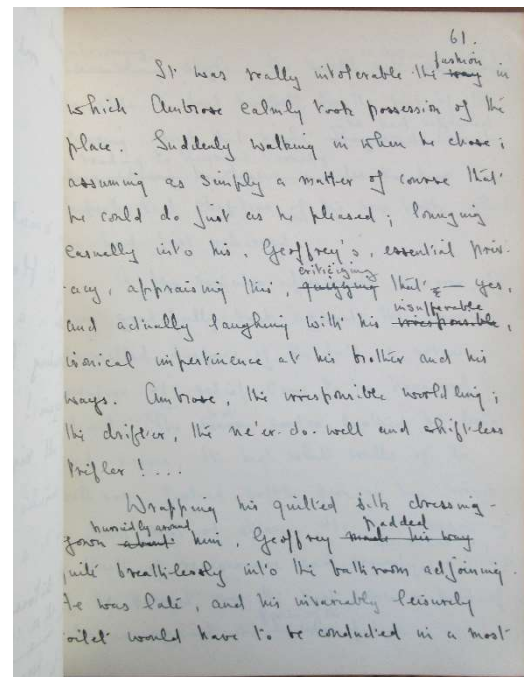 61.
fashion
It was really intolerable the way in
which Ambrose calmly took possession of the
place. Suddenly walking in when he chose;
assuming as simply a matter of course that
he could do just as he pleased; lounging
casually into his, Geoffrey's, essential priv-
-acy, appraising this, quizzing that — yes,
criticizing
insufferable
and actually laughing with his irresponsible,
ironical impertinence at his brother and his
ways. Ambrose, the irresponsible worldling;
the drifter, the ne'er-do-well and shift-less
trifler!....
Wrapping his quilted silk dressing-
hurriedly around
padded
gown about him, Geoffrey made his way
quite breath-lessly into the bathroom adjoining.
He was late, and his invariably leisurely
toilet would have to be conducted in a most